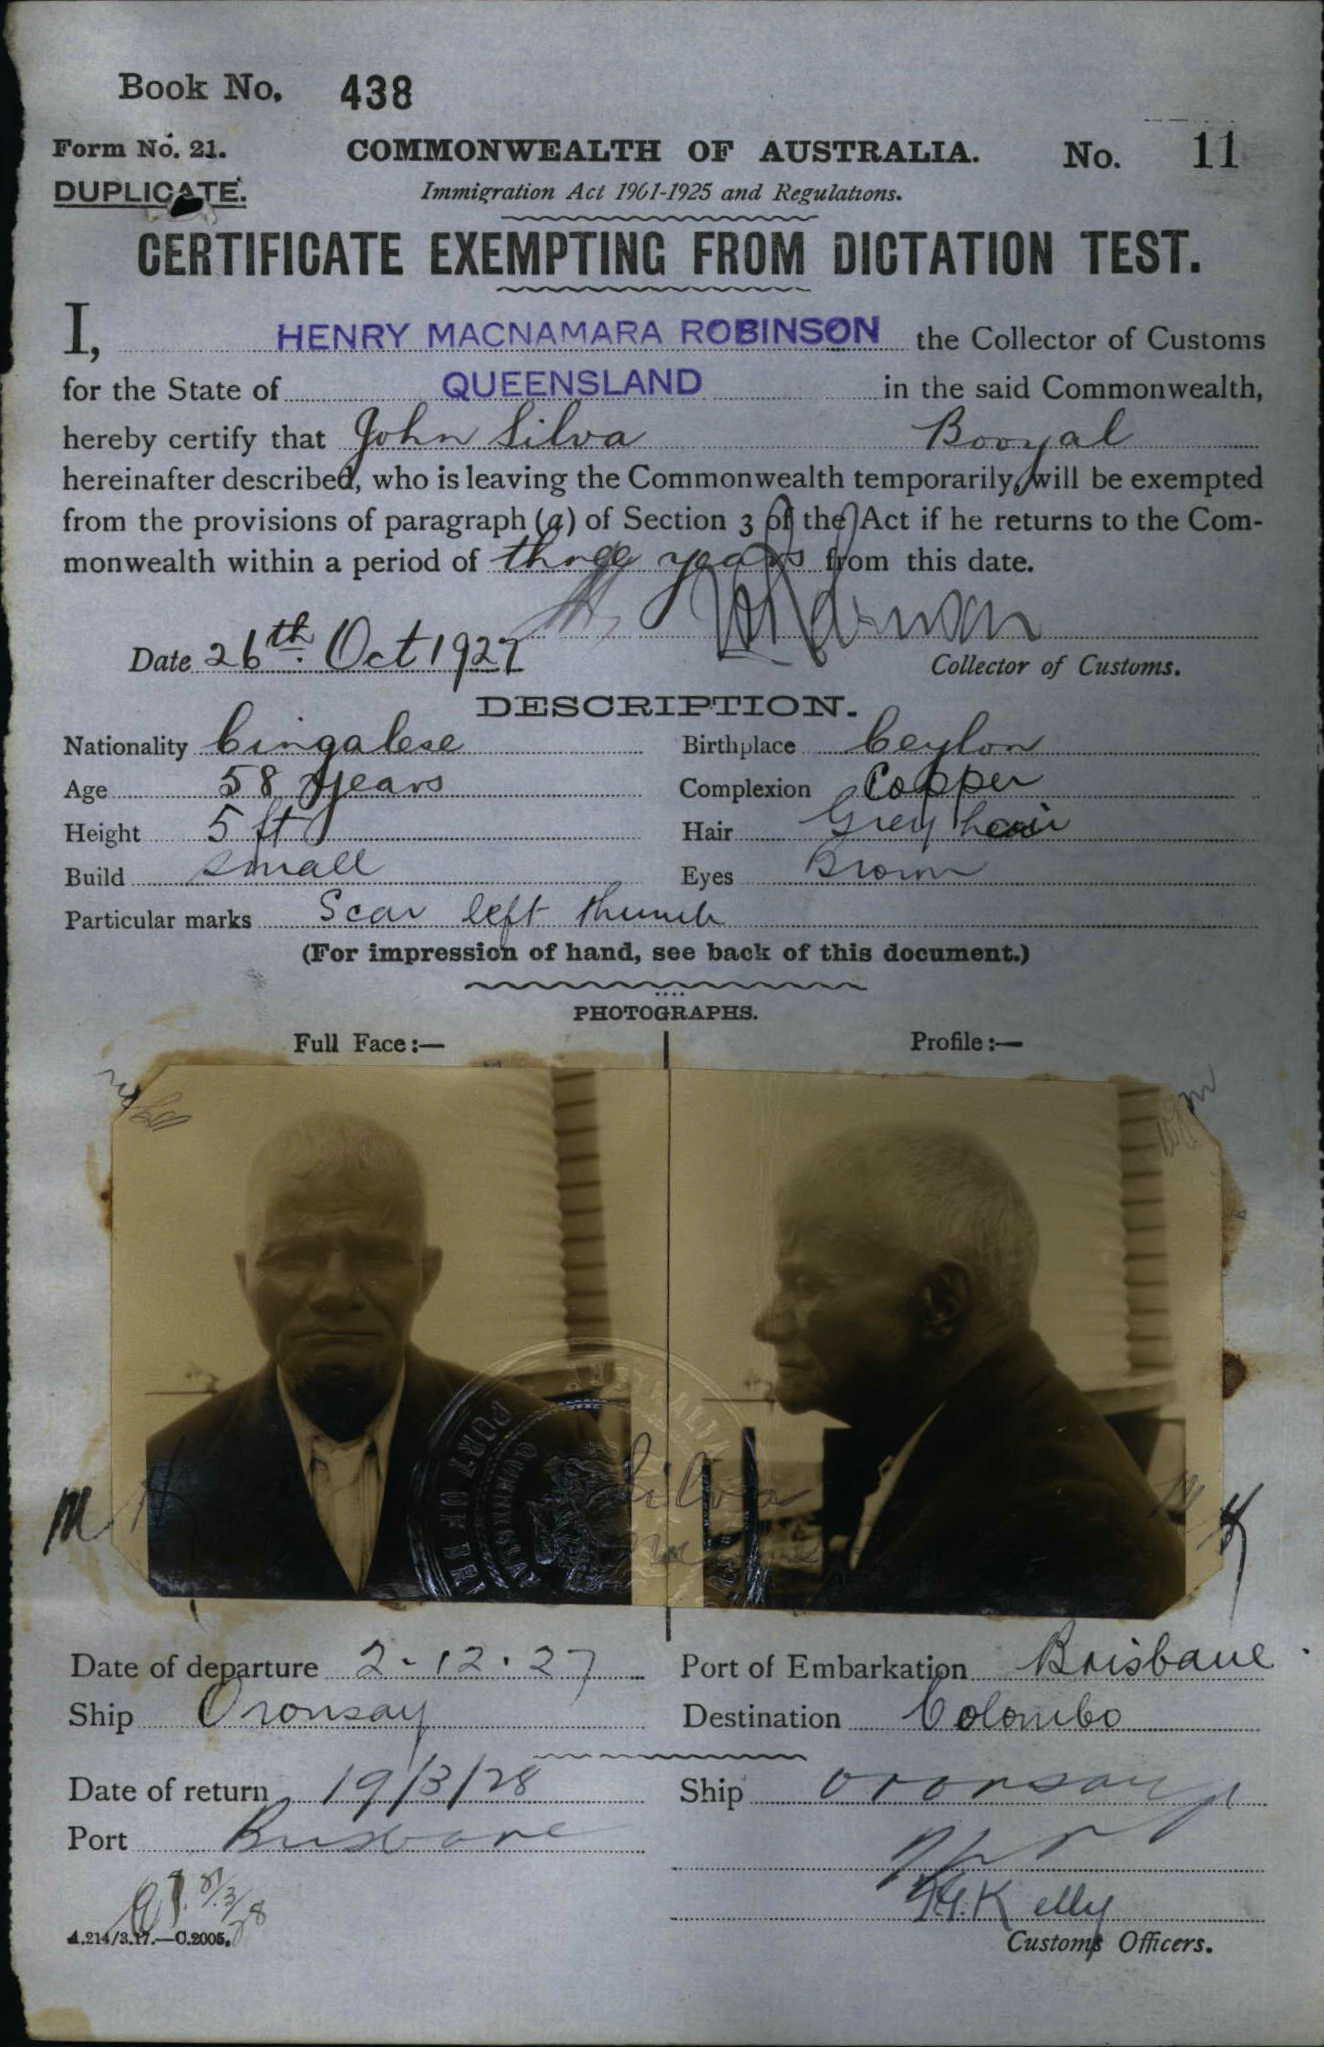 Book No. 438
Form No. 21. COMMONWEALTH OF AUSTRALIA. No. 11
DUPLICATE. Immigration Act 1901-1925 and Regulations.
CERTIFICATE EXEMPTING FROM DICTATION TEST.
I, HENRY MACNAMARA ROBINSON the Collector of Customs
for the State of QUEENSLAND in the said Commonwealth,
hereby certify that John Silva Booyal
hereinafter described, who is leaving the Commonwealth temporarily, will be exempted
from the provisions of paragraph (a) of Section 3 of the Act if he returns to the Com-
monwealth within a period of three years from this date.
Date 26th. Oct 1927
Collector of Customs.
DESCRIPTION.
Nationality Cingalese Birthplace Ceylon
Age 58 years Complexion Copper
Height 5 ft Hair Grey hair
Build small Eyes Brown
Particular marks Scar left thumb
(For impression of hand, see back of this document.)
PHOTOGRAPHS.
Full Face:— Profile:—
PORT OF AUSTRALIA
Silva
Date of departure 2-12.27 Port of Embarkation Brisbane.
Ship Oronsay Destination Colombo
Date of return 19/3/28 Ship Oronsay
Port Brisbane
H.Kelly
A.214/3.17.—C.2005. Customs Officers.